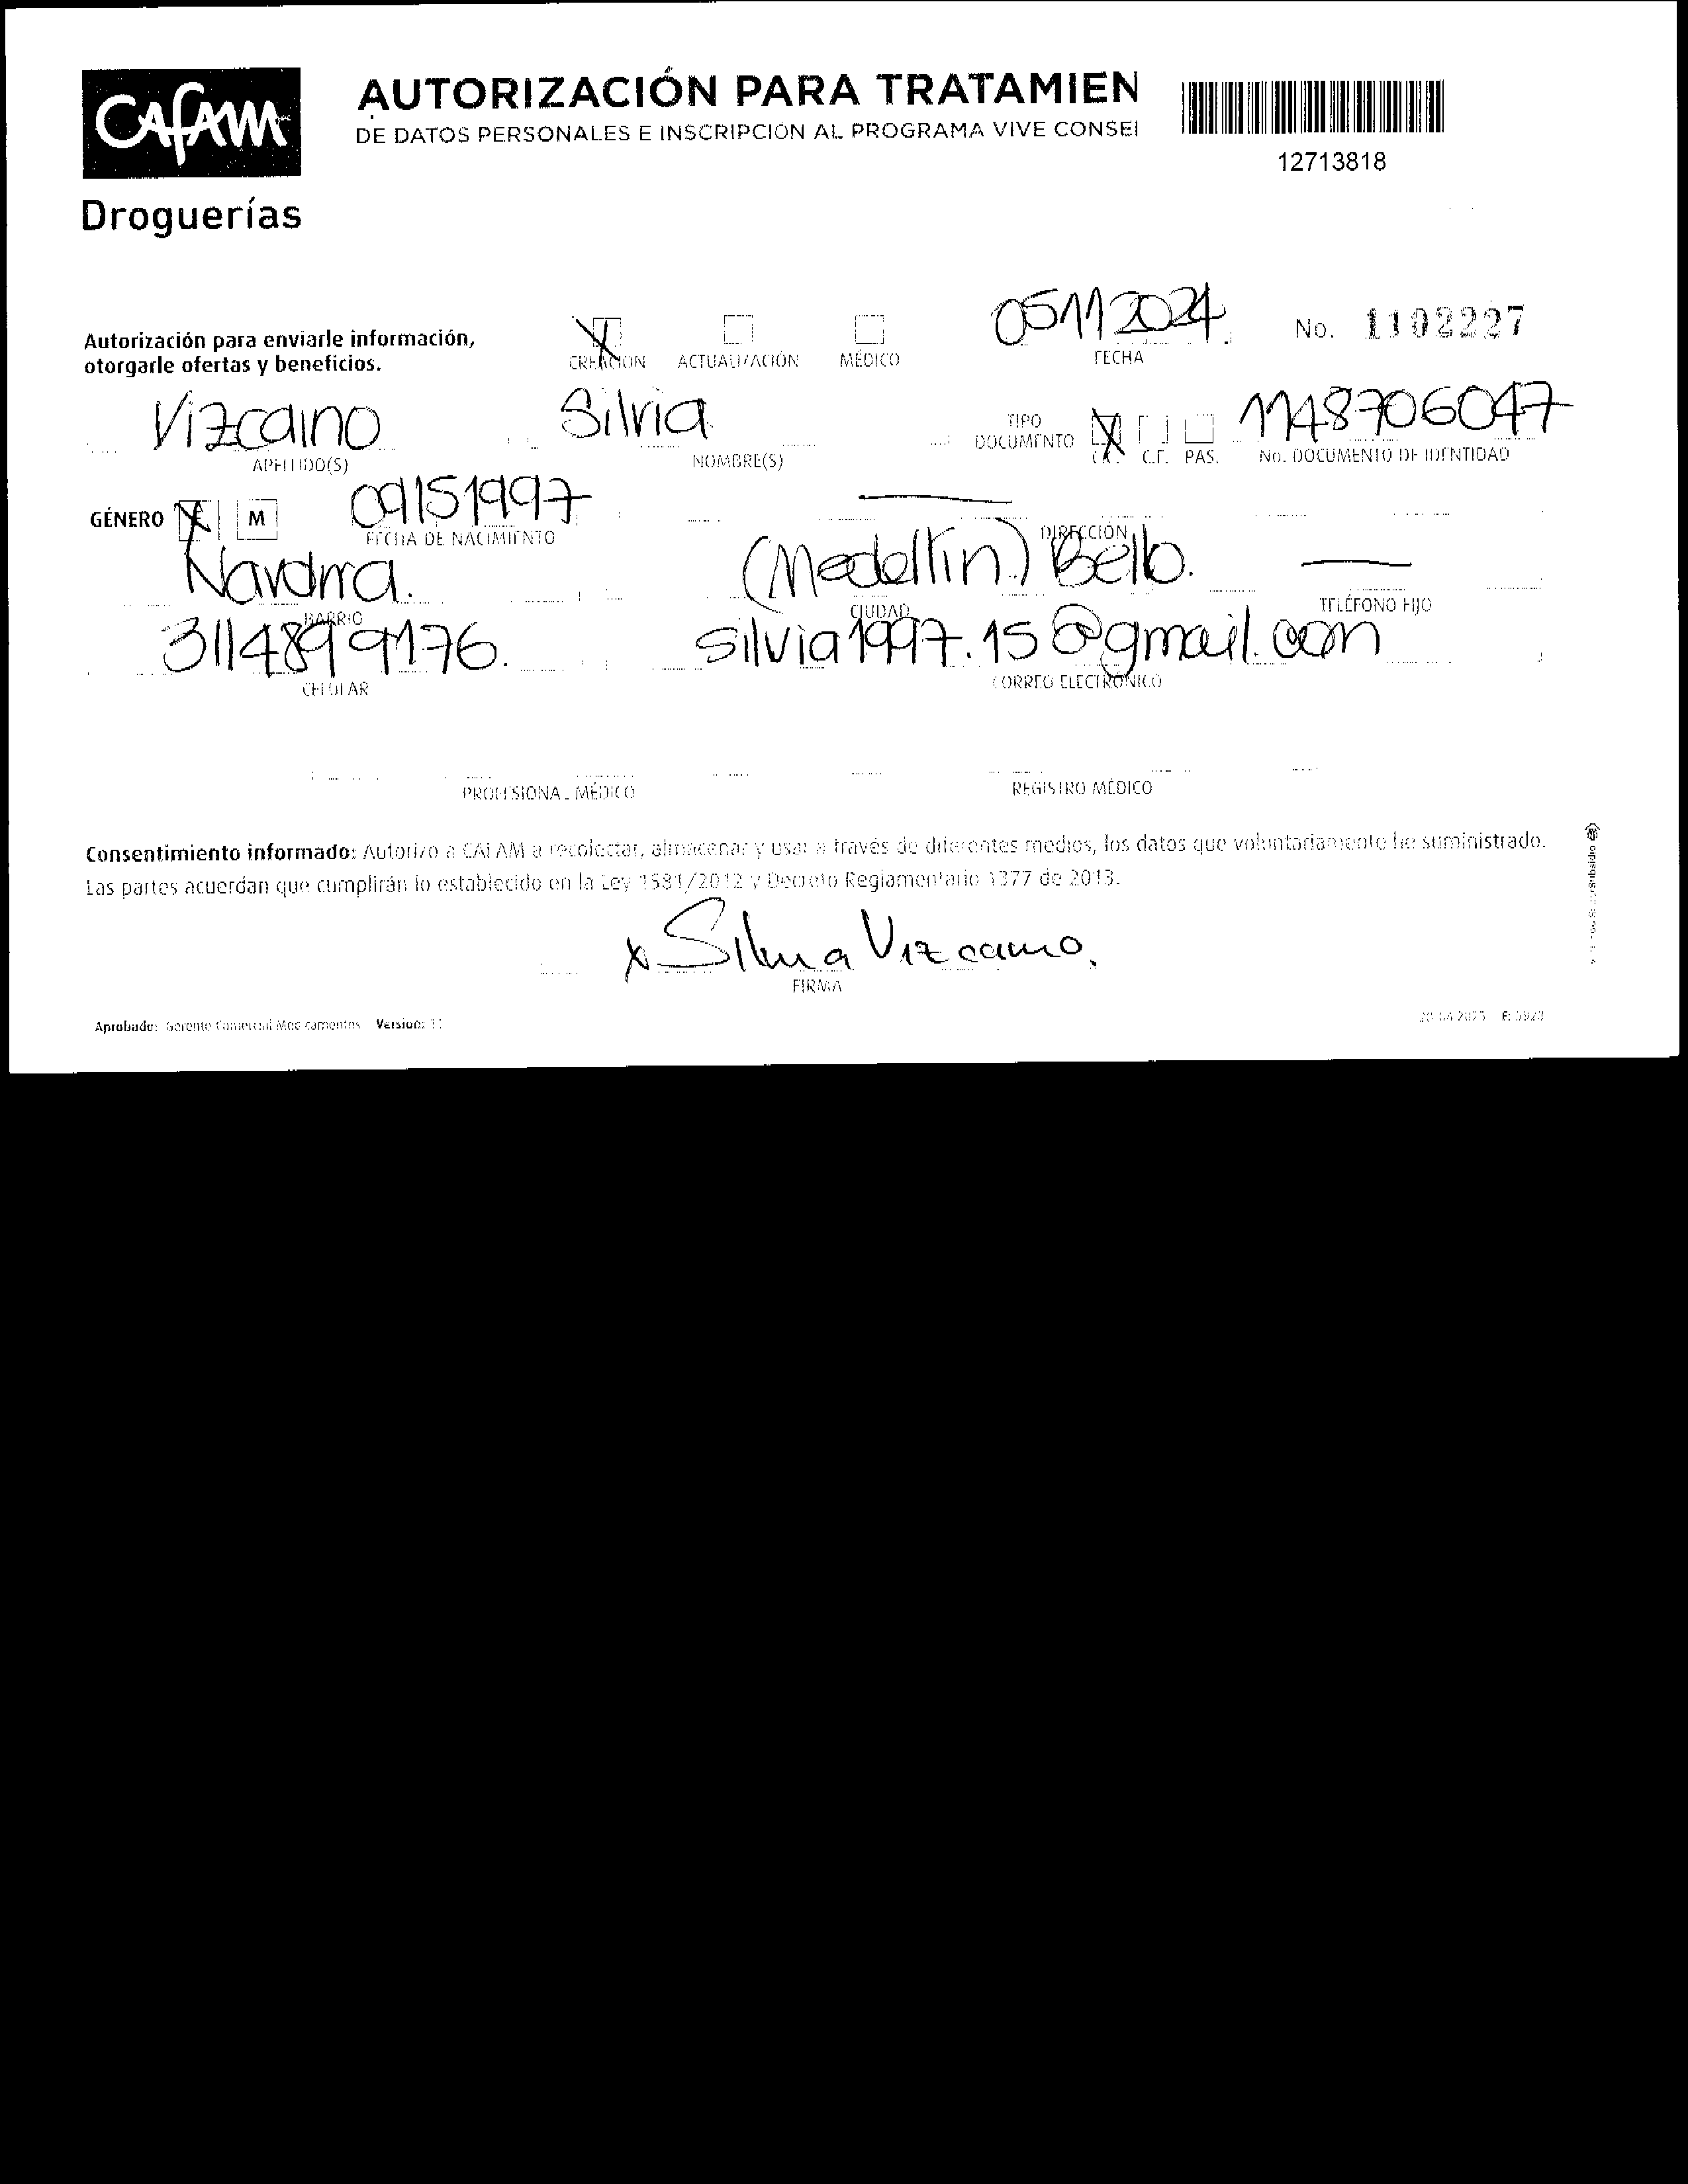 CAFAM
Droguerías
AUTORIZACIÓN PARA TRATAMIEN
DE DATOS PERSONALES E INSCRIPCIÓN AL PROGRAMA VIVE CONSEI
12713818
Autorización para enviarle información,
otorgarle ofertas y beneficios.
CREACIÓN ACTUALIZACIÓN MÉDICO
05112024
FECHA
No. 1102227
Vizcaino
APELLIDO(S)
Silvia
NOMBRE(S)
TIPO
DOCUMENTO
C.C. C.E. PAS.
1148706047
No. DOCUMENTO DE IDENTIDAD
GÉNERO F M
09151997
FECHA DE NACIMIENTO
DIRECCIÓN
BARRIO
(Medellin) Bello.
CIUDAD
TELÉFONO FIJO
3114899176.
CELULAR
silvia1997.15@gmail.com
CORREO ELECTRÓNICO
PROFESIONAL MÉDICO
REGISTRO MÉDICO
Consentimiento informado: Autorizo a CAFAM a recolectar, almacenar y usar a través de diferentes medios, los datos que voluntariamente he suministrado.
Las partes acuerdan que cumplirán lo establecido en la Ley 1581/2012 y Decreto Reglamentario 1377 de 2013.
x Silvia Vizcaino.
FIRMA
Aprobado: Gerente Comercial Medicamentos Versión: 11